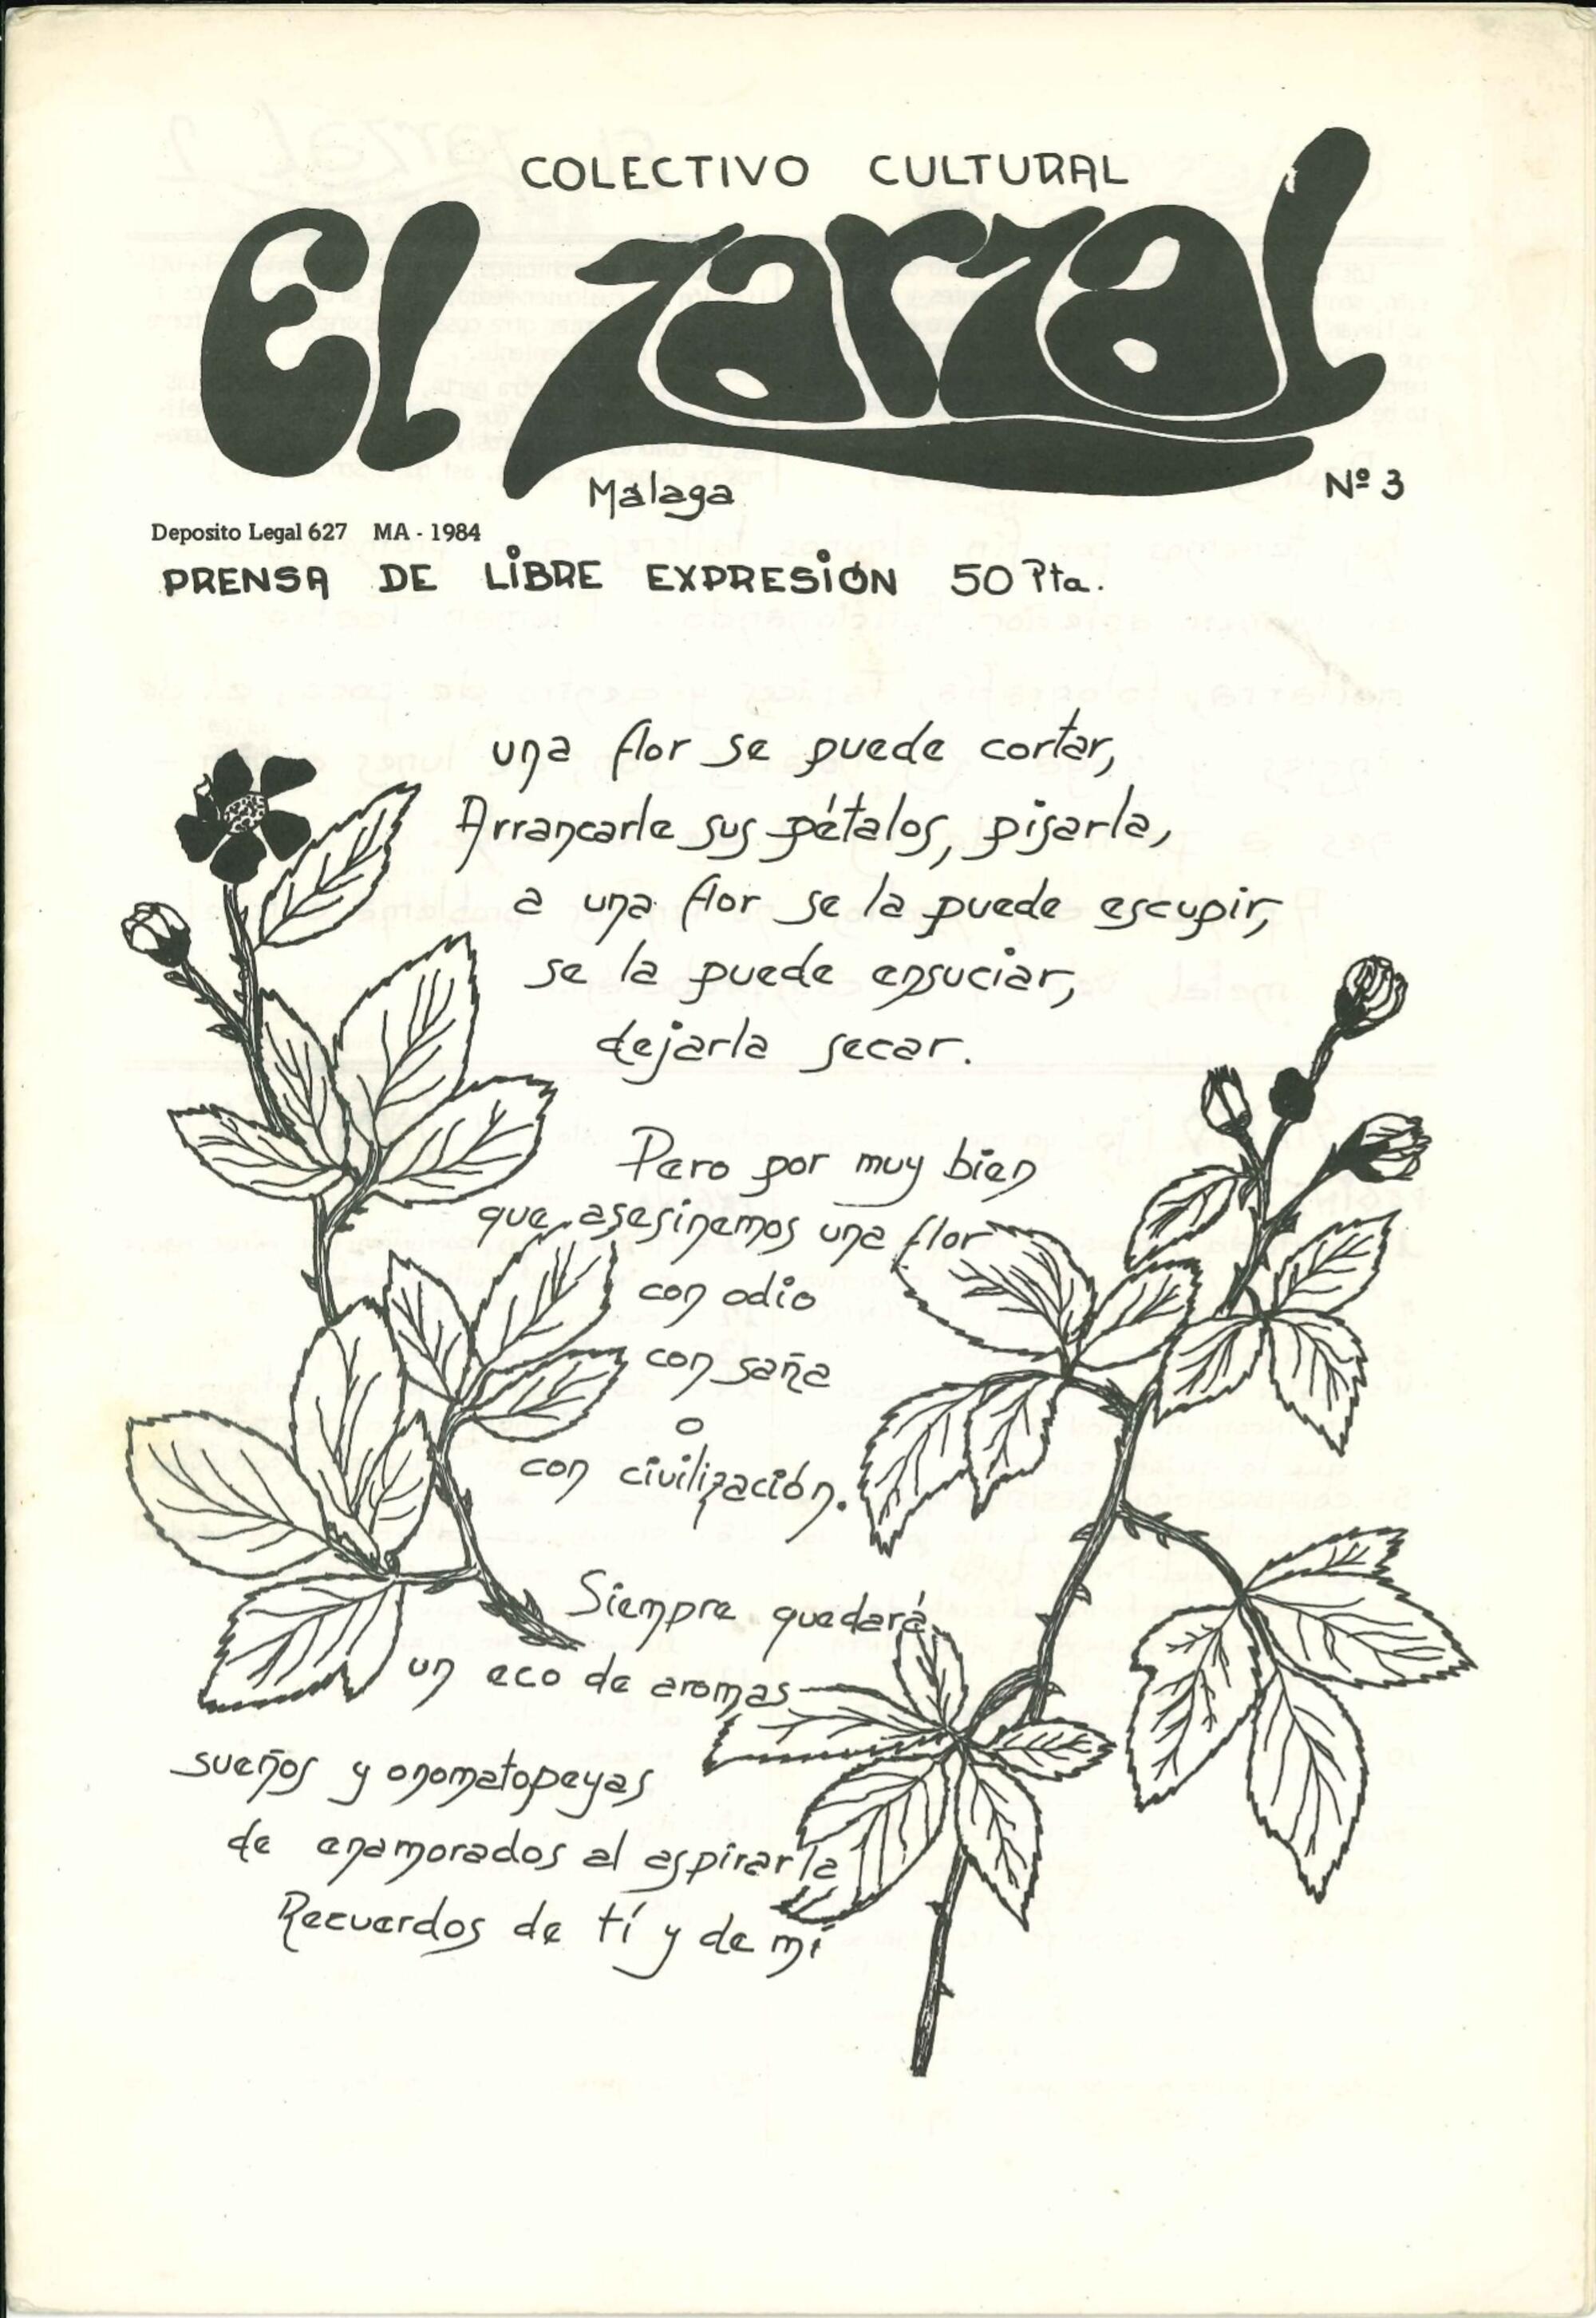 COLECTIVO CULTURAL
El zarzal
Málaga
Nº 3
Deposito Legal 627 MA - 1984
PRENSA DE LIBRE EXPRESIÓN 50 Pta.
una flor se puede cortar,
Arrancarle sus pétalos, pisarla,
a una flor se la puede escupir,
se la puede ensuciar,
dejarla secar.
Pero por muy bien
que asesinemos una flor
con odio
con saña
o
con civilización.
Siempre quedará
un eco de aromas
sueños y onomatopeyas
de enamorados al aspirarla
Recuerdos de tí y de mí